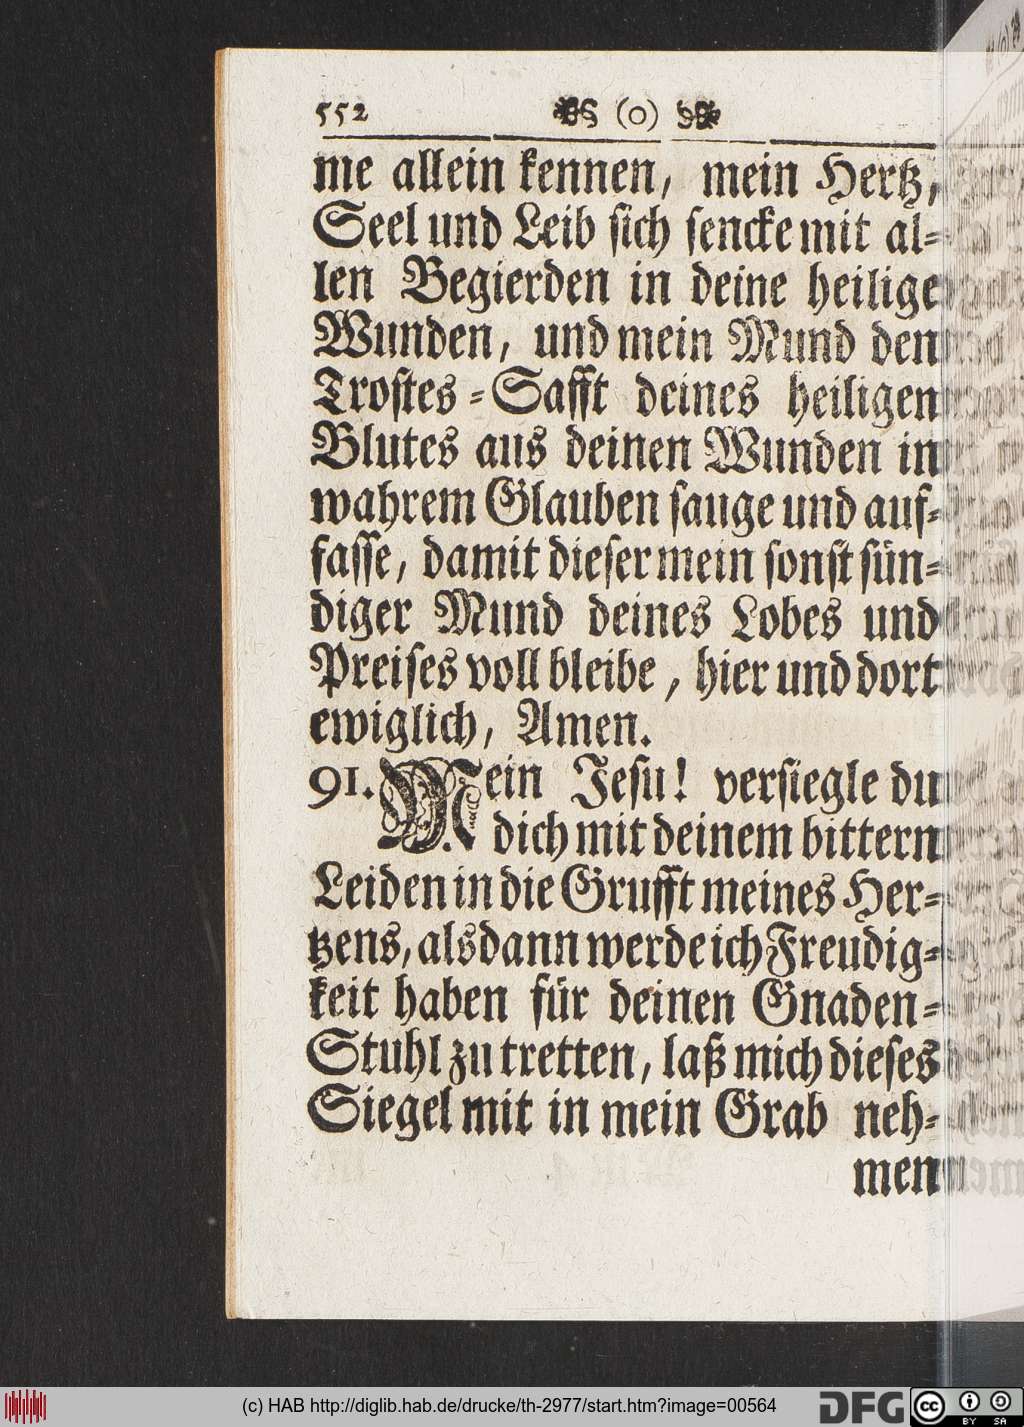 552 (o)
me allein kennen, mein Hertz,
Seel und Leib sich sencke mit al-
len Begierden in deine heilige
Wunden, und mein Mund den
Trostes-Safft deines heiligen
Blutes aus deinen Wunden in
wahrem Glauben sauge und auf-
fasse, damit dieser mein sonst sün-
diger Mund deines Lobes und
Preises voll bleibe, hier und dort
ewiglich, Amen.
91. Mein Jesu! versiegle du
dich mit deinem bittern
Leiden in die Grufft meines Her-
tzens, alsdann werde ich Freudig-
keit haben für deinen Gnaden-
Stuhl zu tretten, laß mich dieses
Siegel mit in mein Grab neh-
men
(c) HAB http://diglib.hab.de/drucke/th-2977/start.htm?image=00564
DFG
cc BY SA